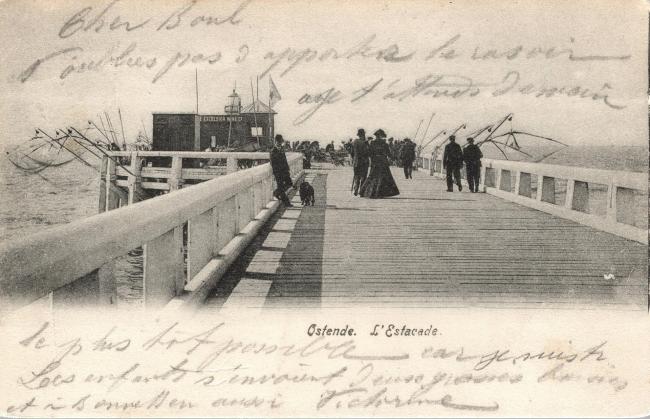 Cher Boul
N'oublies pas d'apporter le rasoir
age t'attends demain
EXCELSIOR WINE Cº
Ostende. L'Estacade.
le plus tot possible car je suis
Les enfants s'envoient deux grosses baises
et à Bonneken aussi Victorine